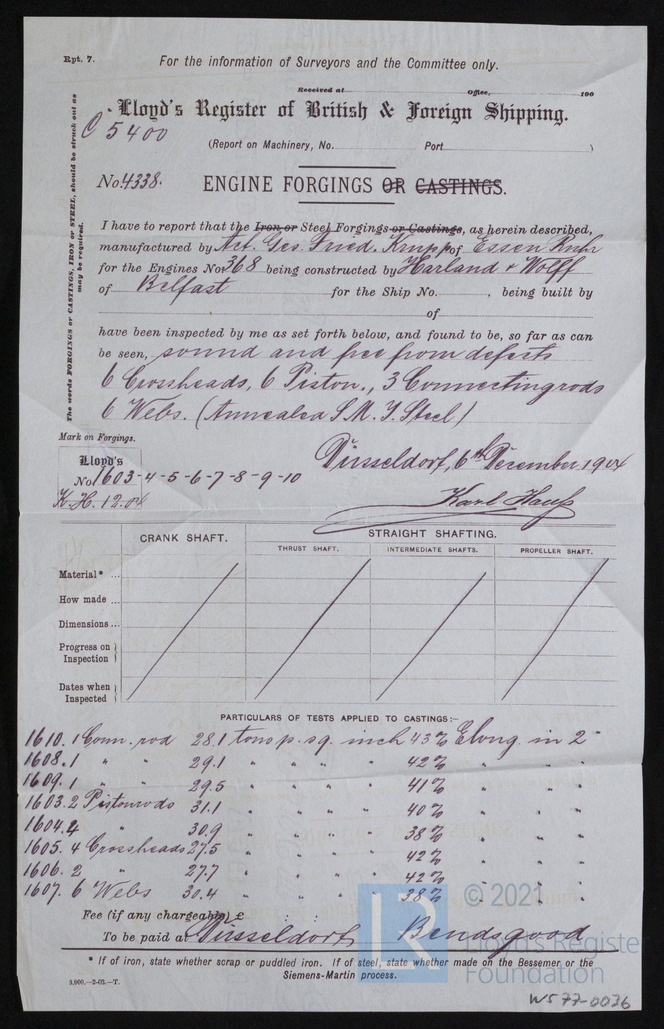 Rpt. 7.
For the information of Surveyors and the Committee only.
Received at Office, 190
Lloyd's Register of British & Foreign Shipping.
C 5400
(Report on Machinery, No. Port )
No. 4338. ENGINE FORGINGS OR CASTINGS.
The words FORGINGS or CASTINGS, IRON or STEEL, should be struck out as may be required.
I have to report that the Iron or Steel Forgings or Castings, as herein described,
manufactured by Act. Ges. Fried. Krupp of Essen Ruhr
for the Engines No. 368 being constructed by Harland & Wolff
of Belfast for the Ship No. , being built by
of
have been inspected by me as set forth below, and found to be, so far as can
be seen, sound and free from defects
6 Crossheads, 6 Piston., 3 Connectingrods
6 Webs. (Annealed S. M. I. Steel)
Mark on Forgings.
Lloyd's
No. 1603-4-5-6-7-8-9-10
K.H. 12.04
Düsseldorf, 6th December 1904
Karl Hauss
CRANK SHAFT. STRAIGHT SHAFTING.
THRUST SHAFT. INTERMEDIATE SHAFTS. PROPELLER SHAFT.
Material* ...
How made ...
Dimensions ...
Progress on Inspection
Dates when Inspected
PARTICULARS OF TESTS APPLIED TO CASTINGS:—
1610. 1 Conn. rod 28.1 tons p. sq. inch 43% Elong. in 2"
1608. 1 " " 29.1 " " " " 42% " " "
1609. 1 " " 29.5 " " " " 41% " " "
1603. 2 Pistonrods 31.1 " " " " 40% " " "
1604. 4 " 30.9 " " " " 38% " " "
1605. 4 Crossheads 27.5 " " " " 42% " " "
1606. 2 " 27.7 " " " " 42% " " "
1607. 6 Webs 30.4 " " " " 38% " " "
Fee (if any chargeable) £ : :
To be paid at Düsseldorf
* If of iron, state whether scrap or puddled iron. If of steel, state whether made on the Bessemer or the
Siemens-Martin process.
3,000.—2-03.—T.
LR © 2021
Lloyd's Register
Foundation
WS77-0036